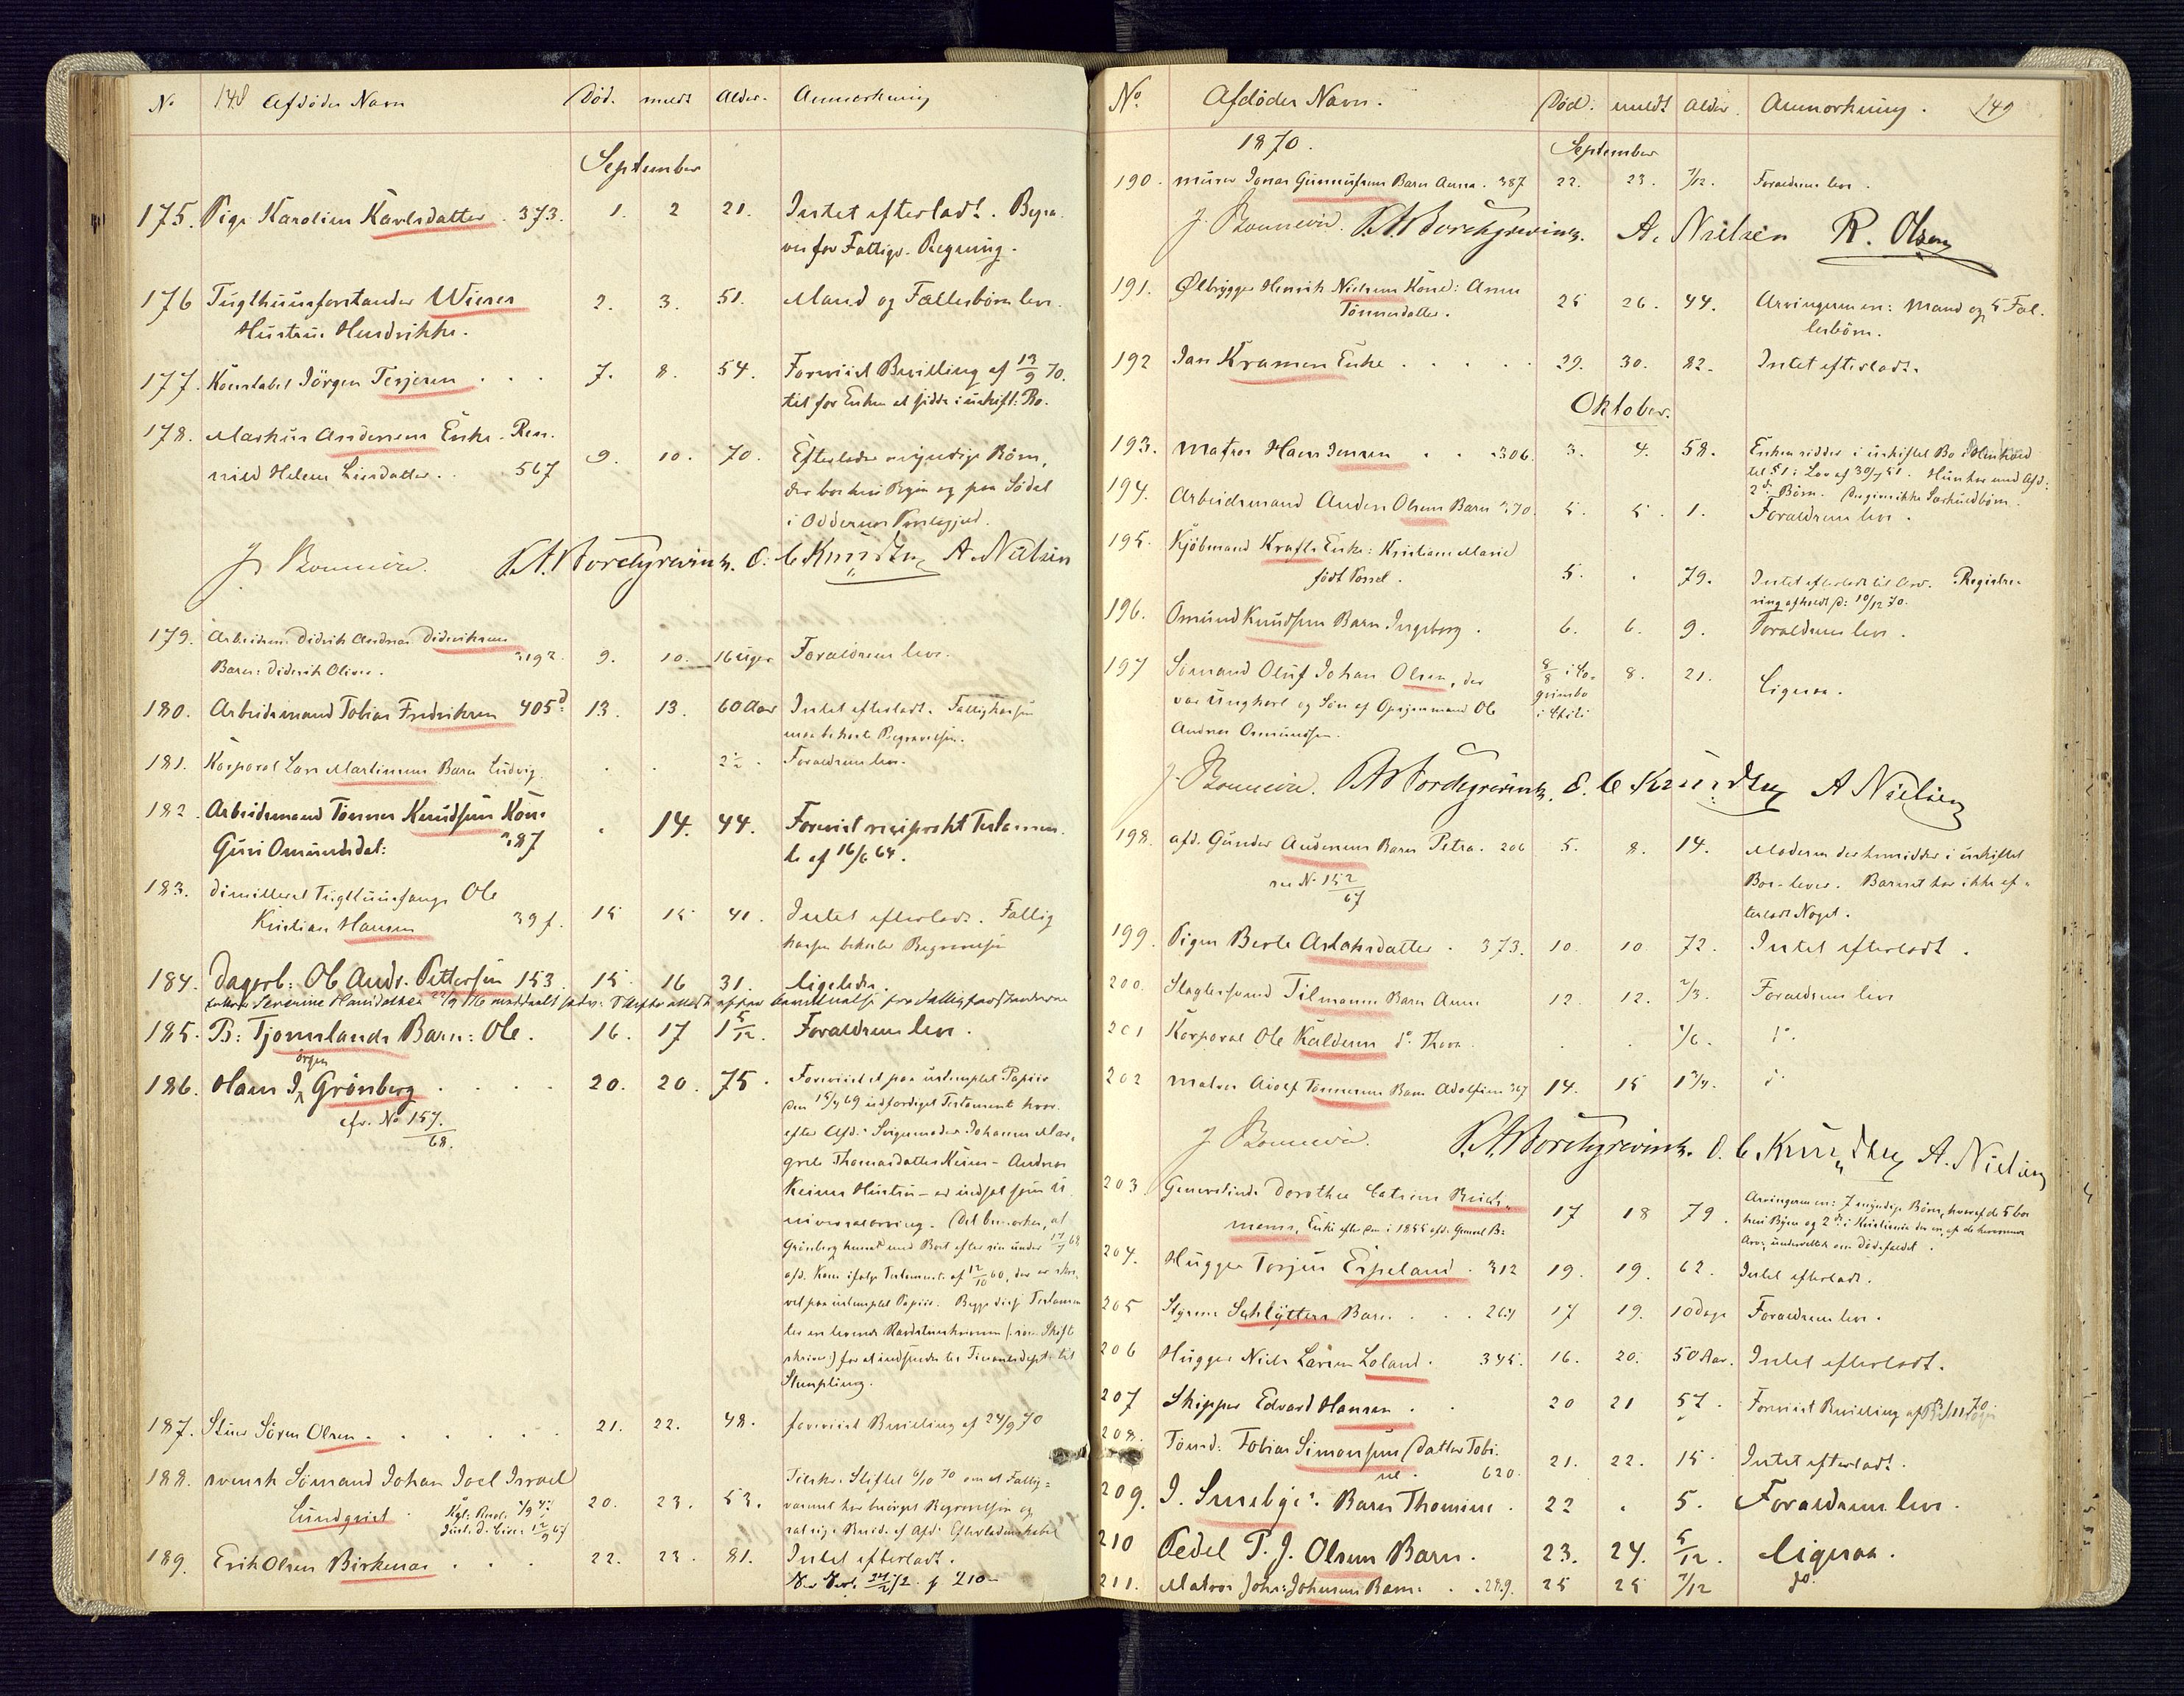 No 148 Afdödes Navn Död. meldt Alder. Anmærkning
September
175. Pige Karoline Karlsdatter. 373. 1. 2 21. Intet efterladt. Begra-
ves for Fattigv. Regning.
176 Tugthuusforstander Wieses 2. 3. 51. Mand og Fællesbörn lever.
Hustrue Hendrikke.
177. Konstabel Jörgen Terjesen . . . 7. 8. 54. Foreviist Bevilling af 13/9 70.
til for Enken at sidde i uskift: Bo.
178. Markus Andersens Enke. Ren-
nild Helene Liesdatter . . 567 9. 10. 70. Efterlader myndige Börn,
der boe heri Byen og paa Södal
i Oddernes Prestegjeld.
J. Bonnevie. P.A. Borchgrevink. O. C. Knudtzen A. Nielsen
179. Arbeidsm. Didrik Andreas Dideriksens
Barn: Diderik Oliver. 219 2. 9. 10. 16 uger Foræeldrene leve.
180. Arbeidsmand Tobias Fredriksen 405 d 13. 13. 60 Aar Intet efterladt. Fattigkassen
maa bekoste Begravelsen.
181. Korporal Lars Martinsens Barn Ludvig. . . 2½. Forældrene leve.
182. Arbeidsmand Tönnes Knudsens Kone . 14. 44. Foreviist reciprokt Testamen-
Guri Omundsdat: 287 te af 16/6 64.
183. Dimitteret Tugthuusfange Ole
Kristian Hansen 39 f. 15 15 41. Intet efterladt. Fattig-
kassen bekoster Begravelsen
184. Dagarb: Ole Andr. Pettersen 153. 15. 16 31. Ligeledes.
185. B: Tjomslands Barn: Ole. 16. 17 1 5/12. Forældrene leve.
186. Hans Jörgen Grönberg . . . . 20. 20. 75. Foreviist et paa ustemplet Papiir
cfr. No 157/68. den 15/4 69 udfærdiget Testament hvor-
efter Afd: Svigermoder Johanne Mar-
grete Thomasdatter Keim - Andreas
Keims Hustru - er indsat som u-
niversalarving. Det bemærkes, at
Grönberg hensad med Boet efter sin under 17/7 68
afd. Kone ifölge Testament af 12/10 60, der er skre-
vet paa ustemplet Papiir. Begge disse Testamen-
ter er leverede Raadstueskriveren (: som Skift-
skriver :) for at indsendes til Finantsdept. til
Stempling.
187. Stuer Sören Olsen . . . . . . 21. 22. 48. foreviist Bevilling af 24/9 70
188. svensk Sömand Johan Joel Israel
Lundqvist . 20. 23. 53. Tilskr. Stiftet 6/10 70 om at Fattig-
væsenet har besörget Begravelsen og
189. Erik Olsen Birkenæs . . . 22. 23. 81. Intet efterladt.
No. Afdödes Navn. Död. meldt Alder. Anmærkning. 149
1870. September
190. murer Jonas Gunnufsens Barn Anna. 387 22. 23. 7/12. Forældrene leve.
J. Bonnevie. P.A. Borchgrevink. A. Nielsen R. Olsen
191. Ölbrygger Henrik Nielsens Kone: Anne
Tönnesdatter. 25 26. 44. Arvingerne er: Mand og 5 Fæl-
lesbörn.
192 Jan Kramers Enke . . . . . 29. 30. 82. Intet efterladt.
Oktober.
193. Matros Hans Jensen . . . 306. 3. 4. 58. Enken sidder i uskiftet Bo i Henhold
til § 1 i Lov af 30/7 51. Hun har med Afd:
2de Börn. Der gives ikke Særkuldbörn.
194. Arbeidsmand Anders Olsens Barn 270. 5. 5. 1. Forældrene leve.
195. Kjöbmand Krafts Enke: Kristiane Marie
födt Possel. 5. . 79. Intet efterladt til Arv. Registre-
ring afholdt d: 10/12 70.
196. Omund Knudsens Barn Ingeborg. 6. 6. 9. Forældrene leve.
197 Sömand Oluf Johan Olsen, der 8/8 i Co- 8. 21. Ligesaa.
var Ungkarl og Sön af Opsynsmand Ole quimbo
Andreas Osmundsen. i Chili
J. Bonnevie. P.A. Borchgrevink. O. C. Knudtzen A. Nielsen
198. afd. Gunder Andersens Barn Petra. 206 5. 8. 14. Moderen der hensidder i uskiftet
see No 152/67 Boe - lever. Barnet har ikke ef-
terladt Noget.
199. Pigen Berte Aslaksdatter . 373. 10. 10 72. Intet efterladt.
200. Slagtersvend Tilmanns Barn Anne 12. 12. 2/3. Forældrene leve
201 Korporal Ole Kaldens do Thora. . . 1/6. do.
202 Matros Adolf Tönnesens Barn Adolfine 367 14. 15 1 3/4. do
J. Bonnevie. P.A. Borchgrevink. O. C. Knudtzen A. Nielsen
203. Generalinde Dorothea Catrine Beich-
manns, Enke efter den i 1855 afd. General B: 17 18 79. Arvingerne er: 7 myndige Börn, hvoraf de 5 bor
heri Byen og 2de i Kristiania
204. Hugger Torjus Espeland. 312 19. 19. 62. Intet efterladt.
205 Styrm. Schlytters Barn . . . 264 17 19. 10 dage Forældrene leve.
206 Hugger Niels Larsen Loland . 345. 16. 20. 50 Aar. Intet efterladt.
207 Skipper Edvard Hansen . . 20 21 57. Foreviist Bevilling af
208. Tömd: Tobias Simonsens Datter Tobi-
ne. 620. 21. 22. 15. Intet efterladt.
209. J. Suneby's: Barn Thomine . 22 . 5. Forældrene leve.
210 Pedel P. J. Olsens Barn. 23. 24. 5/12. Ligesaa.
211. Matros Johs: Johnsens Barn: . . 299. 25 25 7/12 do.